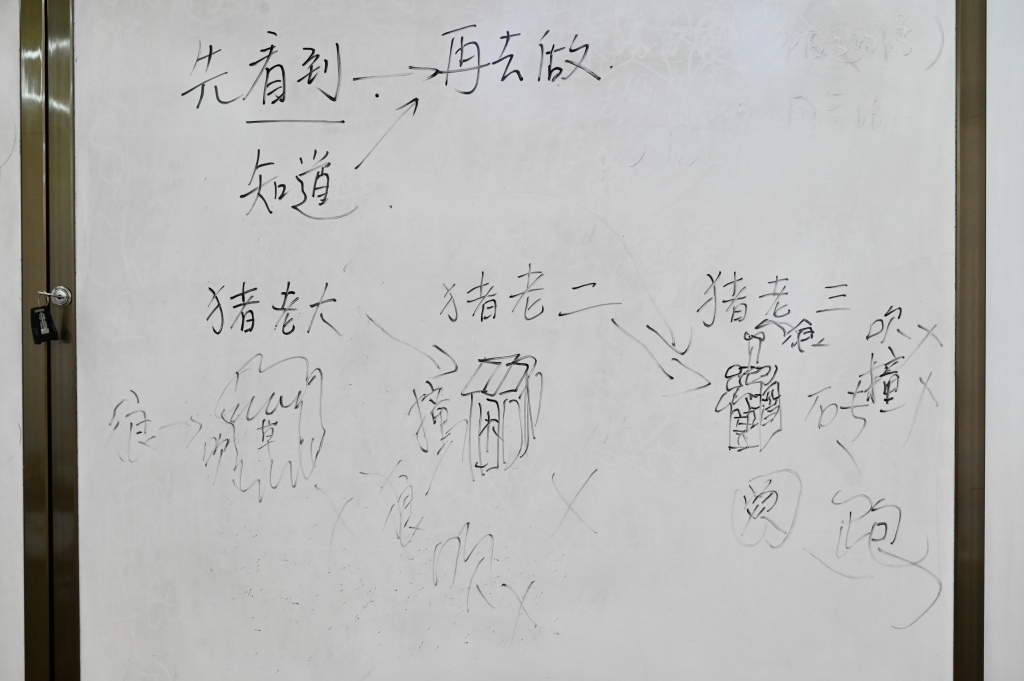 先看到 → 再去做.
知道
猪老大 猪老二 猪老三
狼 吹 ×
狼 → 吹 草 撞 困 砖 撞 ×
× 狼 × 跑
吹 ×